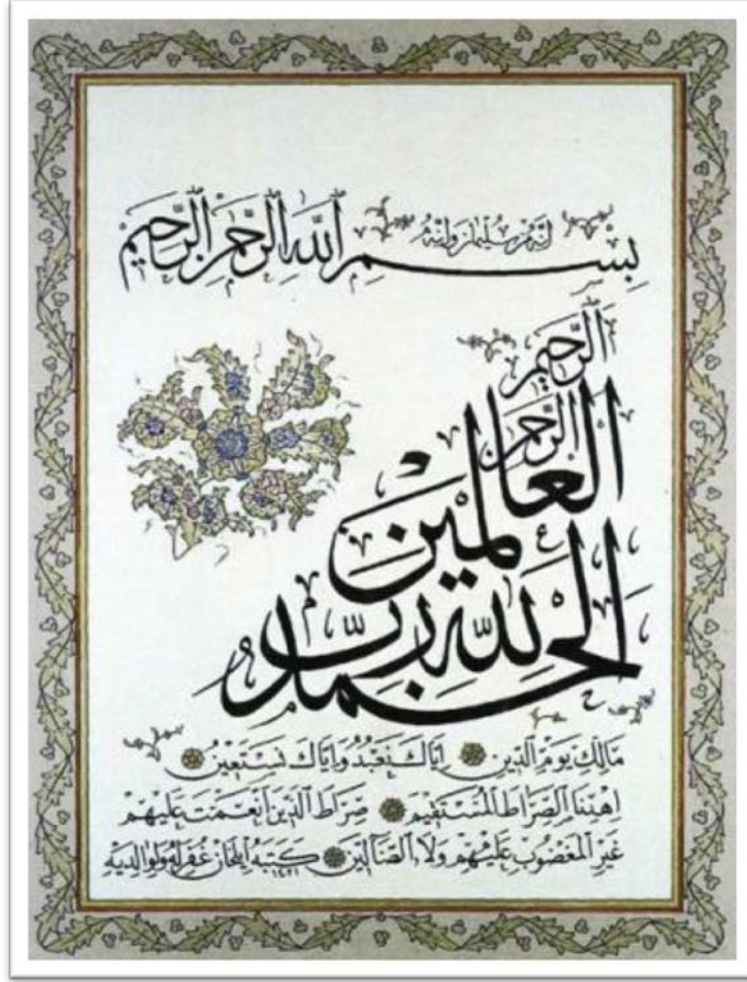 إنه من سليمان وإنه
بِسْمِ اللهِ الرَّحْمٰنِ الرَّحِيمِ
الْحَمْدُ لِلهِ رَبِّ
الْعَالَمِينَ
الرَّحْمٰنِ
الرَّحِيمِ
مَالِكِ يَوْمِ الدِّينِ اِيَّاكَ نَعْبُدُ وَاِيَّاكَ نَسْتَعِينُ
اِهْدِنَا الصِّرَاطَ الْمُسْتَقِيمَ صِرَاطَ الَّذِينَ اَنْعَمْتَ عَلَيْهِمْ
غَيْرِ الْمَغْضُوبِ عَلَيْهِمْ وَلَا الضَّالِّينَ كتبه ايلخان غفر له ولوالديه
١٤٢١